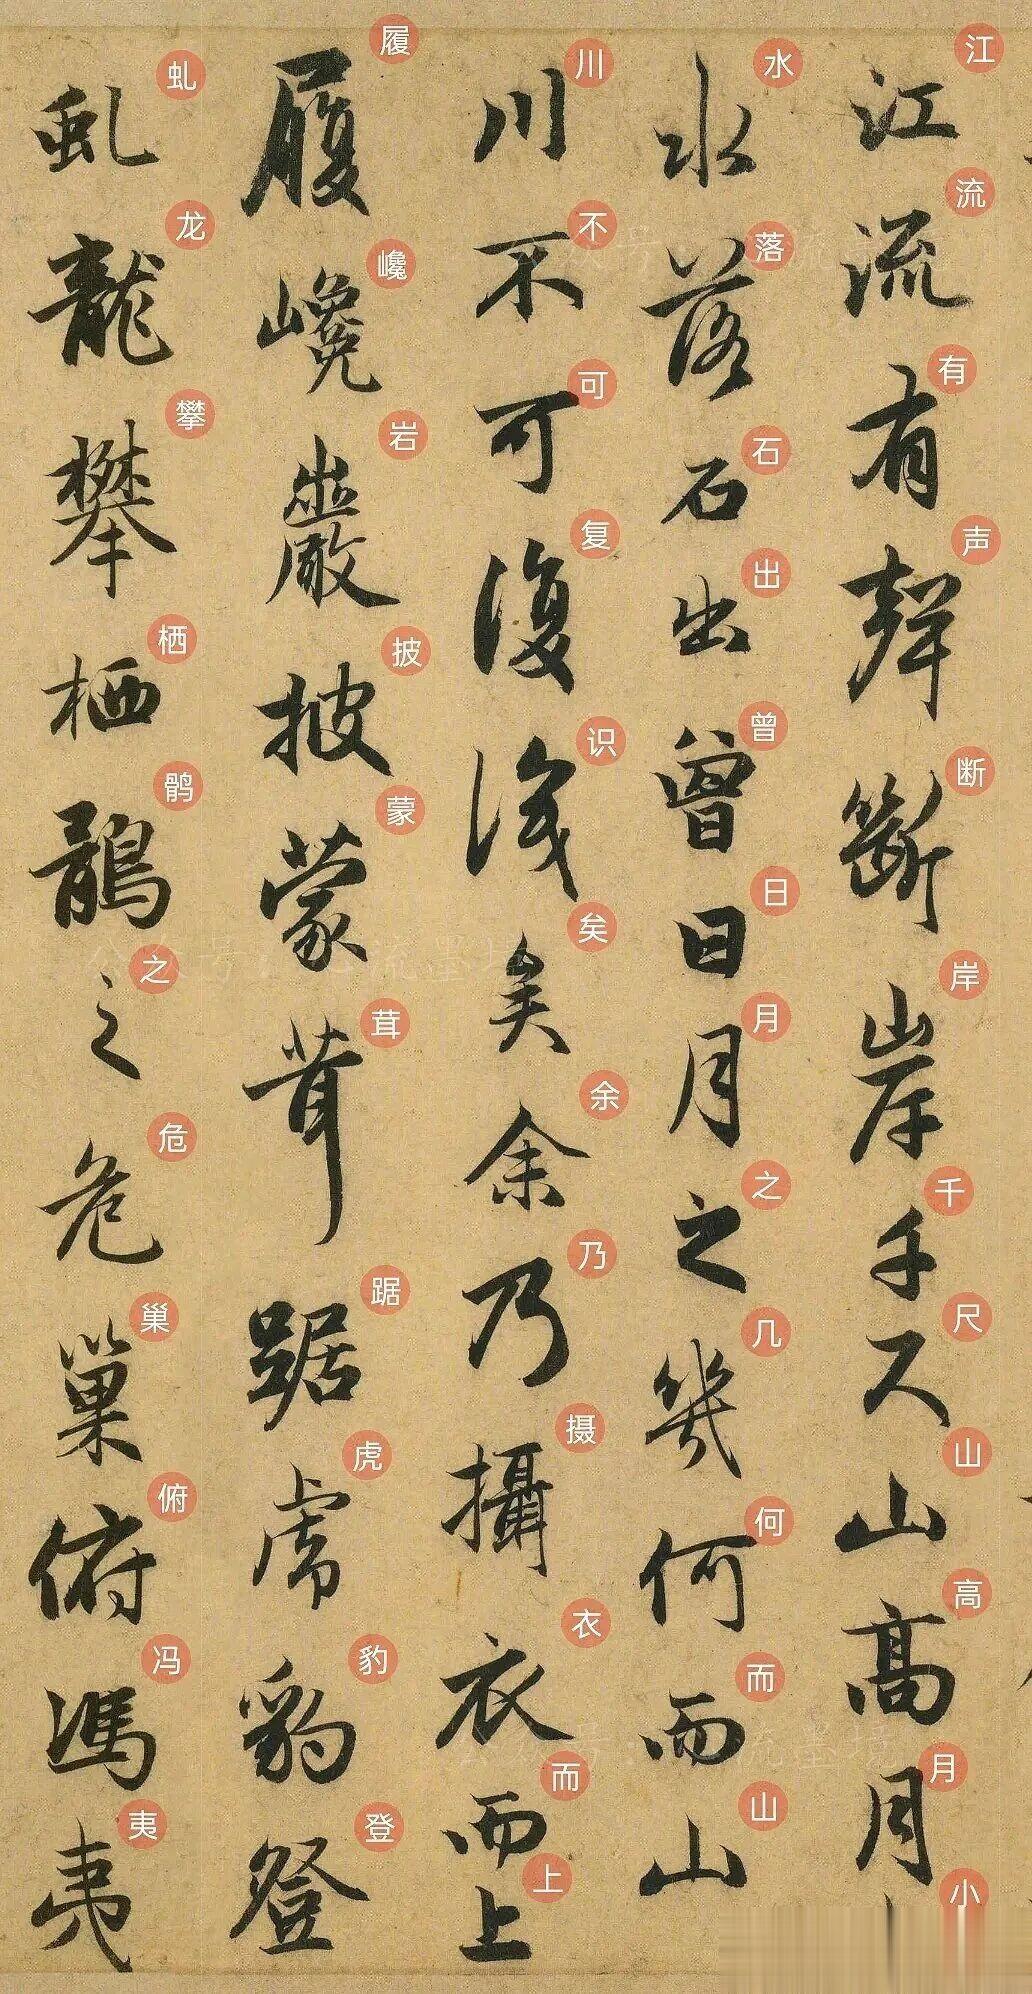 江流有聲斷岸千尺山高月
江流有声断岸千尺山高月小
水落石出曾日月之幾何而山
水落石出曾日月之几何而山
川不可復識矣余乃攝衣而上
川不可复识矣余乃摄衣而上
履巉巖披蒙茸踞虎豹登
履巉岩披蒙茸踞虎豹登
虬龍攀栖鶻之危巢俯馮夷
虬龙攀栖鹘之危巢俯冯夷